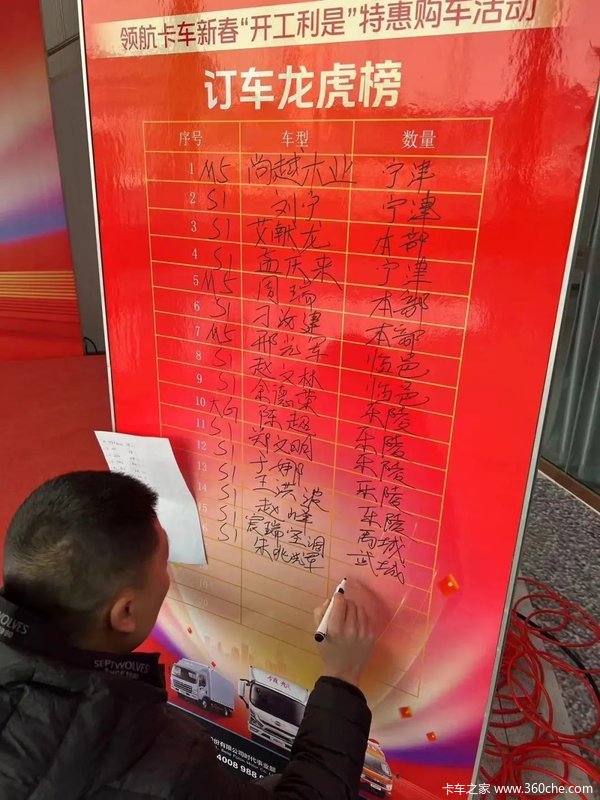 领航卡车新春“开工利是”特惠购车活动
订车龙虎榜
序号 车型 数量
1 M5 尚越木业 宁津
2 S1 刘宁 宁津
3 S1 艾献龙 本部
4 S1 孟庆来 宁津
5 M5 周瑞 本部
6 S1 刁汝建 本部
7 M5 邢光军 临邑
8 S1 赵文林 临邑
9 S1 余德荣 乐陵
10 大G 陈超 乐陵
11 S1 郑文明 乐陵
12 S1 于娜 乐陵
13 S1 王洪波 乐陵
14 S1 赵峰 禹城
15 S1 宸瑞空调 武城
S1 宋兆军
20
SEPTWOLVES
股份有限公司时代事业部
4008 988
卡车之家 www.360che.com